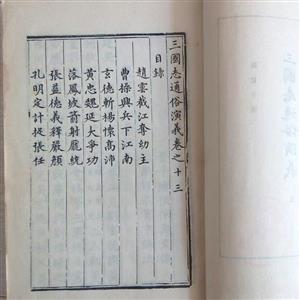 三國志通俗演義卷之十三
目錄
趙雲截江奪幼主
曹操興兵下江南
玄德斬楊懷高沛
黃忠魏延大爭功
落鳳坡箭射龐統
張益德義釋嚴顏
孔明定計捉張任
三國志通俗演義